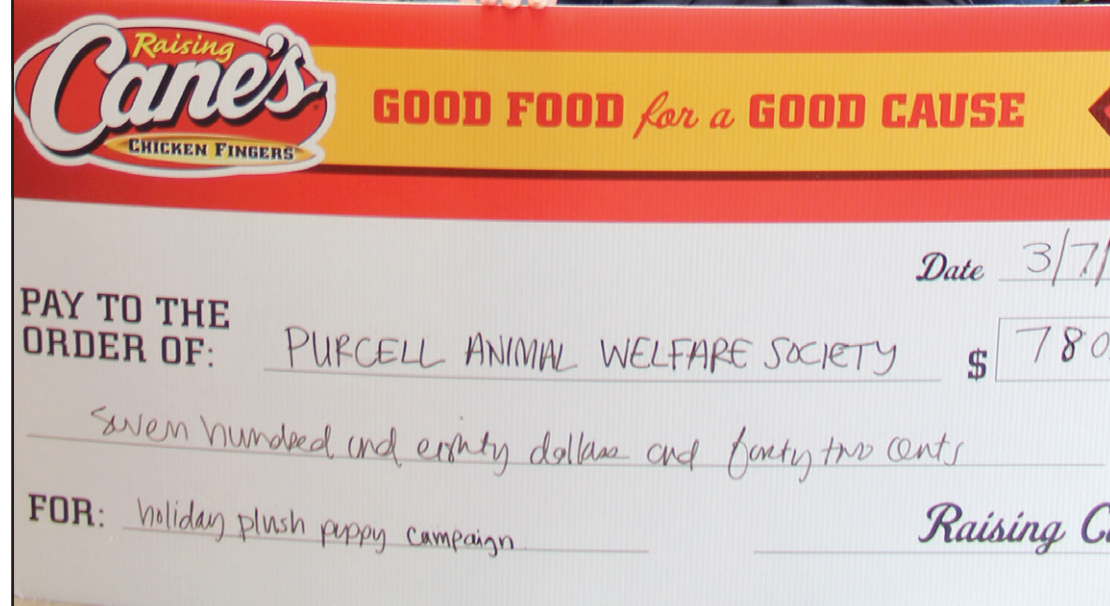 Raising
Cane's
CHICKEN FINGERS
GOOD FOOD for a GOOD CAUSE
Date 3/7/
PAY TO THE
ORDER OF: PURCELL ANIMAL WELFARE SOCIETY $ 780
seven hundred and eighty dollars and fourty two cents
FOR: holiday plush puppy campaign
Raising C